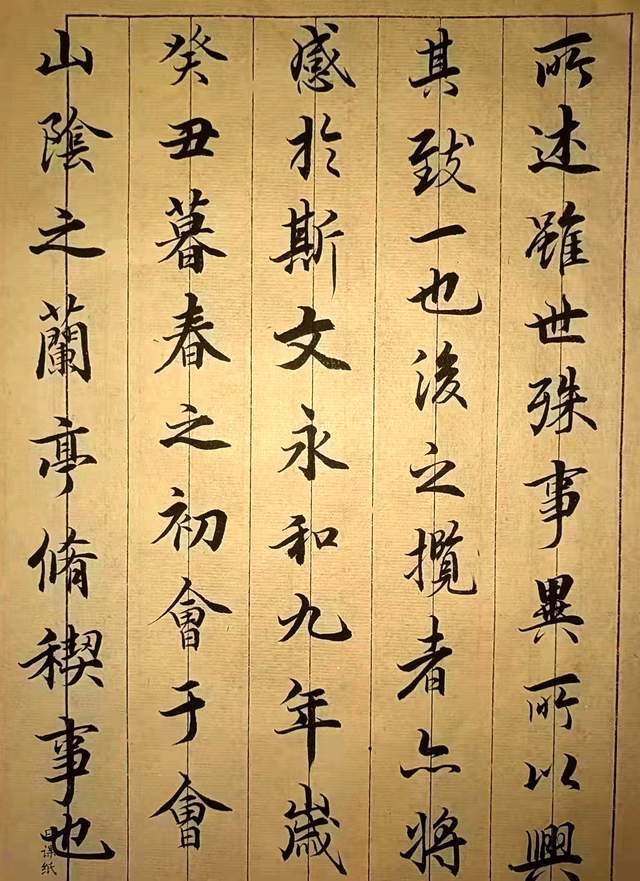 所述雖世殊事異所以興
其致一也後之攬者亦將
感於斯文永和九年歲
癸丑暮春之初會于會
山陰之蘭亭脩稧事也